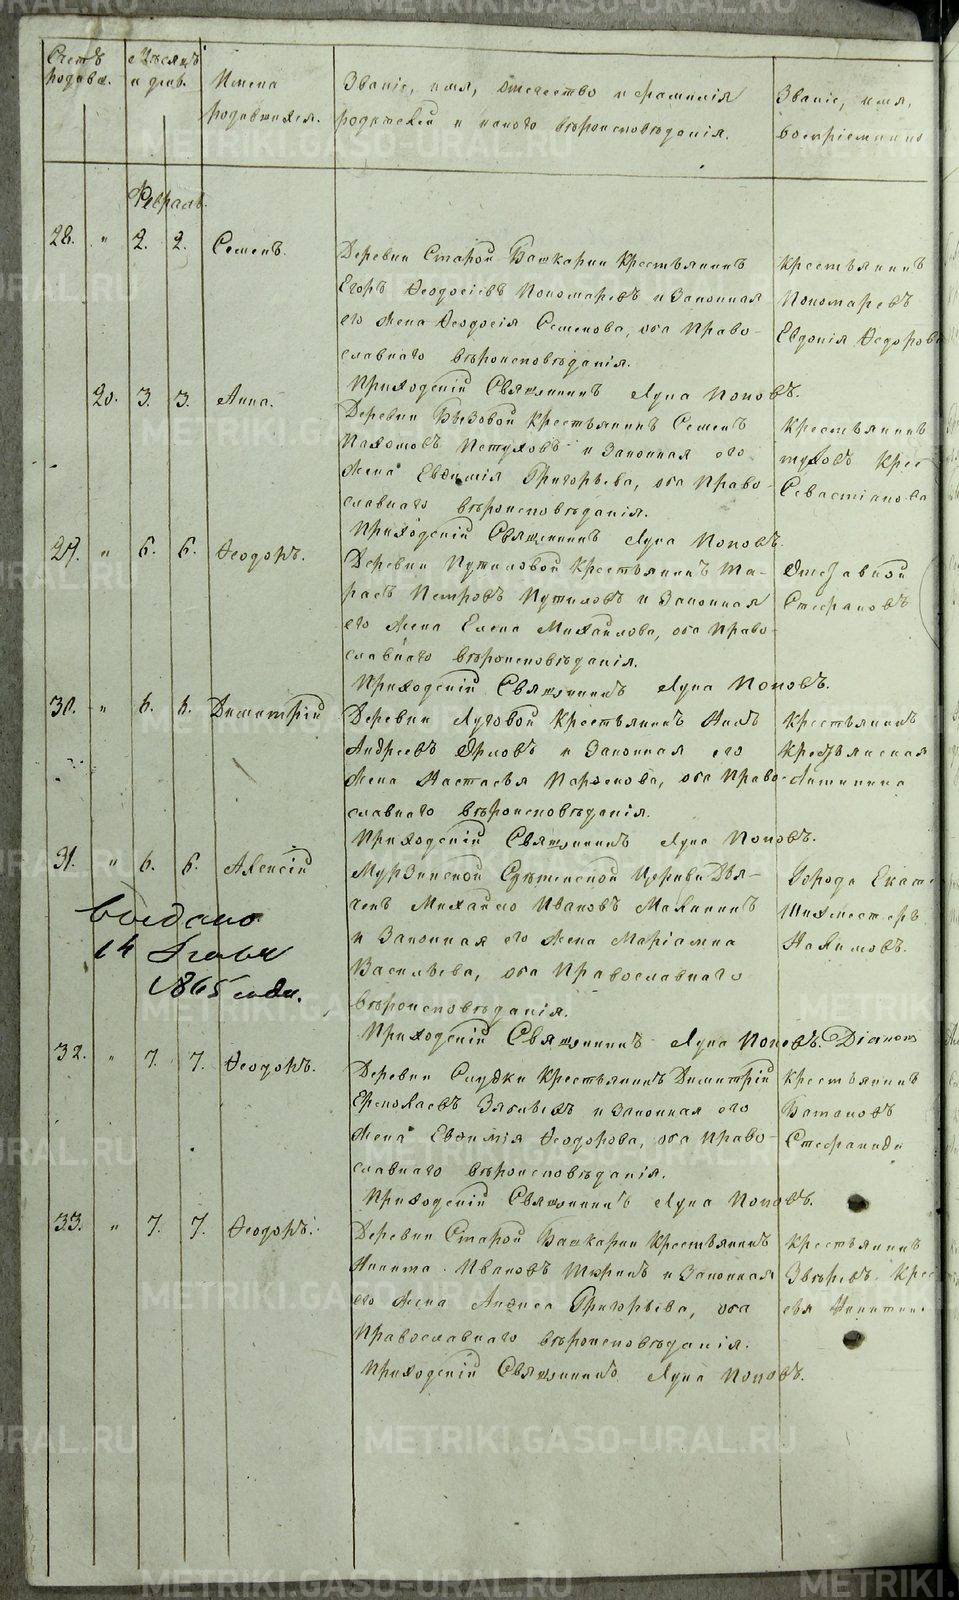 METRIKI.GASO-URAL.RU
Счетъ родивш.
Мѣсяцъ и день.
Имена родившихся.
Званіе, имя, отчество и фамилія
родителей и какого вѣроисповѣданія.
Званіе, имя,
воспріемнико
Февраль.
28. " 2. 2. Семенъ.
Деревни Старой Башкарки крестьянинъ
Егоръ Ѳеодосіевъ Пономаревъ и законная
его жена Ѳеодосія Семенова, оба право-
славнаго вѣроисповѣданія.
Приходскій Священникъ Лука Поповъ.
Крестьянинъ
Пономаревъ
Евдокія Ѳедоров
20. 3. 3. Анна.
Деревни Вызовой крестьянинъ Семенъ
Пахомовъ Петуховъ и законная его
жена Евѳимія Григорьева, оба право-
славнаго вѣроисповѣданія.
Приходскій Священникъ Лука Поповъ.
Крестьянинъ
туховъ крес
Севастіанова
29. " 6. 6. Ѳеодоръ.
Деревни Путиловой крестьянинъ Та-
расъ Петровъ Путиловъ и законная
его жена Елена Михайлова, оба право-
славнаго вѣроисповѣданія.
Приходскій Священникъ Лука Поповъ.
Отставной
Стефановъ
30. " 6. 6. Димитрій
Деревни Луговой крестьянинъ
Андреевъ Орловъ и законная его
жена Настасья Парѳенова, оба право-
славнаго вѣроисповѣданія.
Приходскій Священникъ Лука Поповъ.
Крестьянинъ
крестьянская
31. " 6. 6. Алексій
Мурзинской Срѣтенской церкви Дья-
чекъ Михайло Ивановъ Малининъ
и законная его жена Маріамна
Васильева, оба Православнаго
вѣроисповѣданія.
Приходскій Священникъ Лука Поповъ. Діаконъ
Города Екате
Шихместеръ
Налимовъ.
14
1865 года.
32. " 7. 7. Ѳеодоръ.
Деревни Слудки крестьянинъ Димитрій
Ермолаевъ Зыковъ и законная его
жена Евѳимія Ѳеодорова, оба право-
славнаго вѣроисповѣданія.
Приходскій Священникъ Лука Поповъ.
Крестьянинъ
Стефанида
33. " 7. 7. Ѳеодоръ.
Деревни Старой Башкарки крестьянинъ
Никита Ивановъ Тюринъ и законная
его жена Анѳиса Григорьева, оба
Православнаго вѣроисповѣданія.
Приходскій Священникъ Лука Поповъ.
Крестьянинъ
Звѣревъ. Крес
Никитин